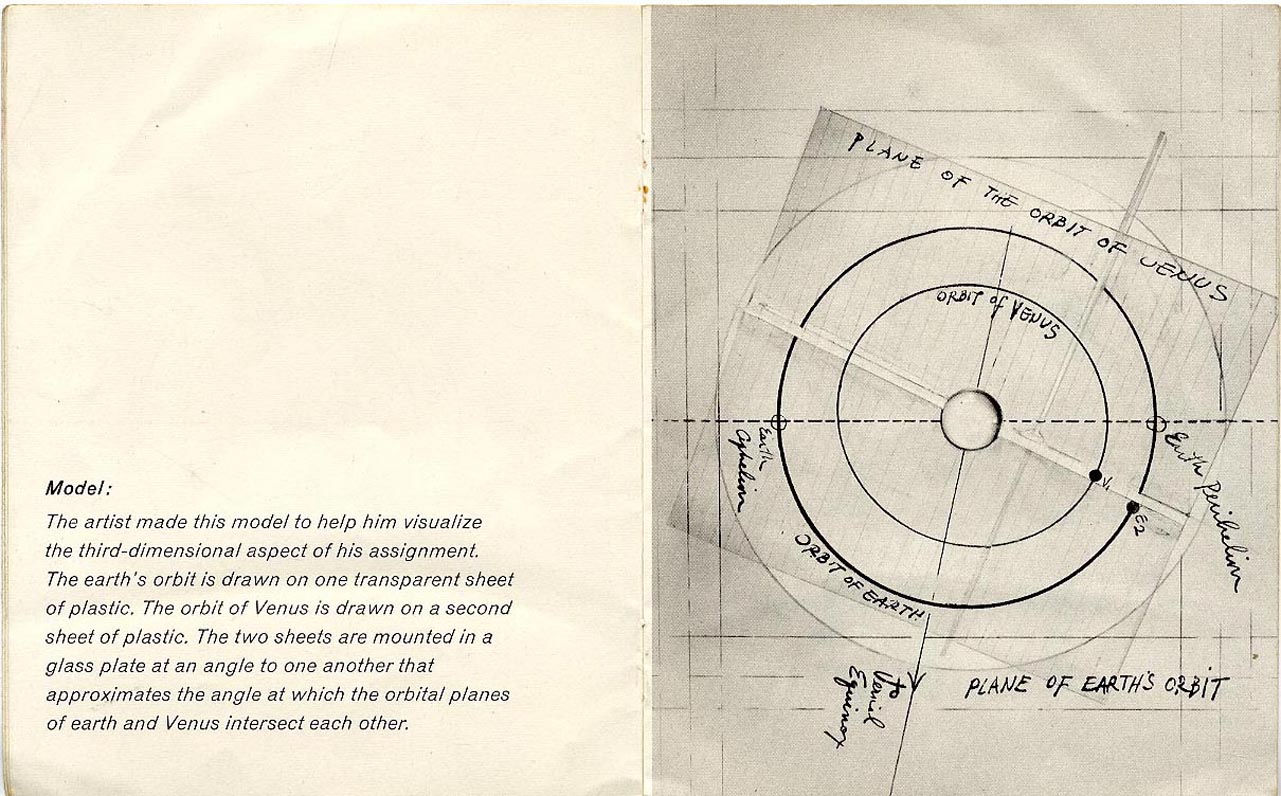 Model:
The artist made this model to help him visualize
the third-dimensional aspect of his assignment.
The earth's orbit is drawn on one transparent sheet
of plastic. The orbit of Venus is drawn on a second
sheet of plastic. The two sheets are mounted in a
glass plate at an angle to one another that
approximates the angle at which the orbital planes
of earth and Venus intersect each other.
PLANE OF THE ORBIT OF VENUS
ORBIT of VENUS
Earth
Aphelion
Earth Perihelion
V1
E2
ORBIT OF EARTH
to
Vernal
Equinox
PLANE OF EARTH'S ORBIT